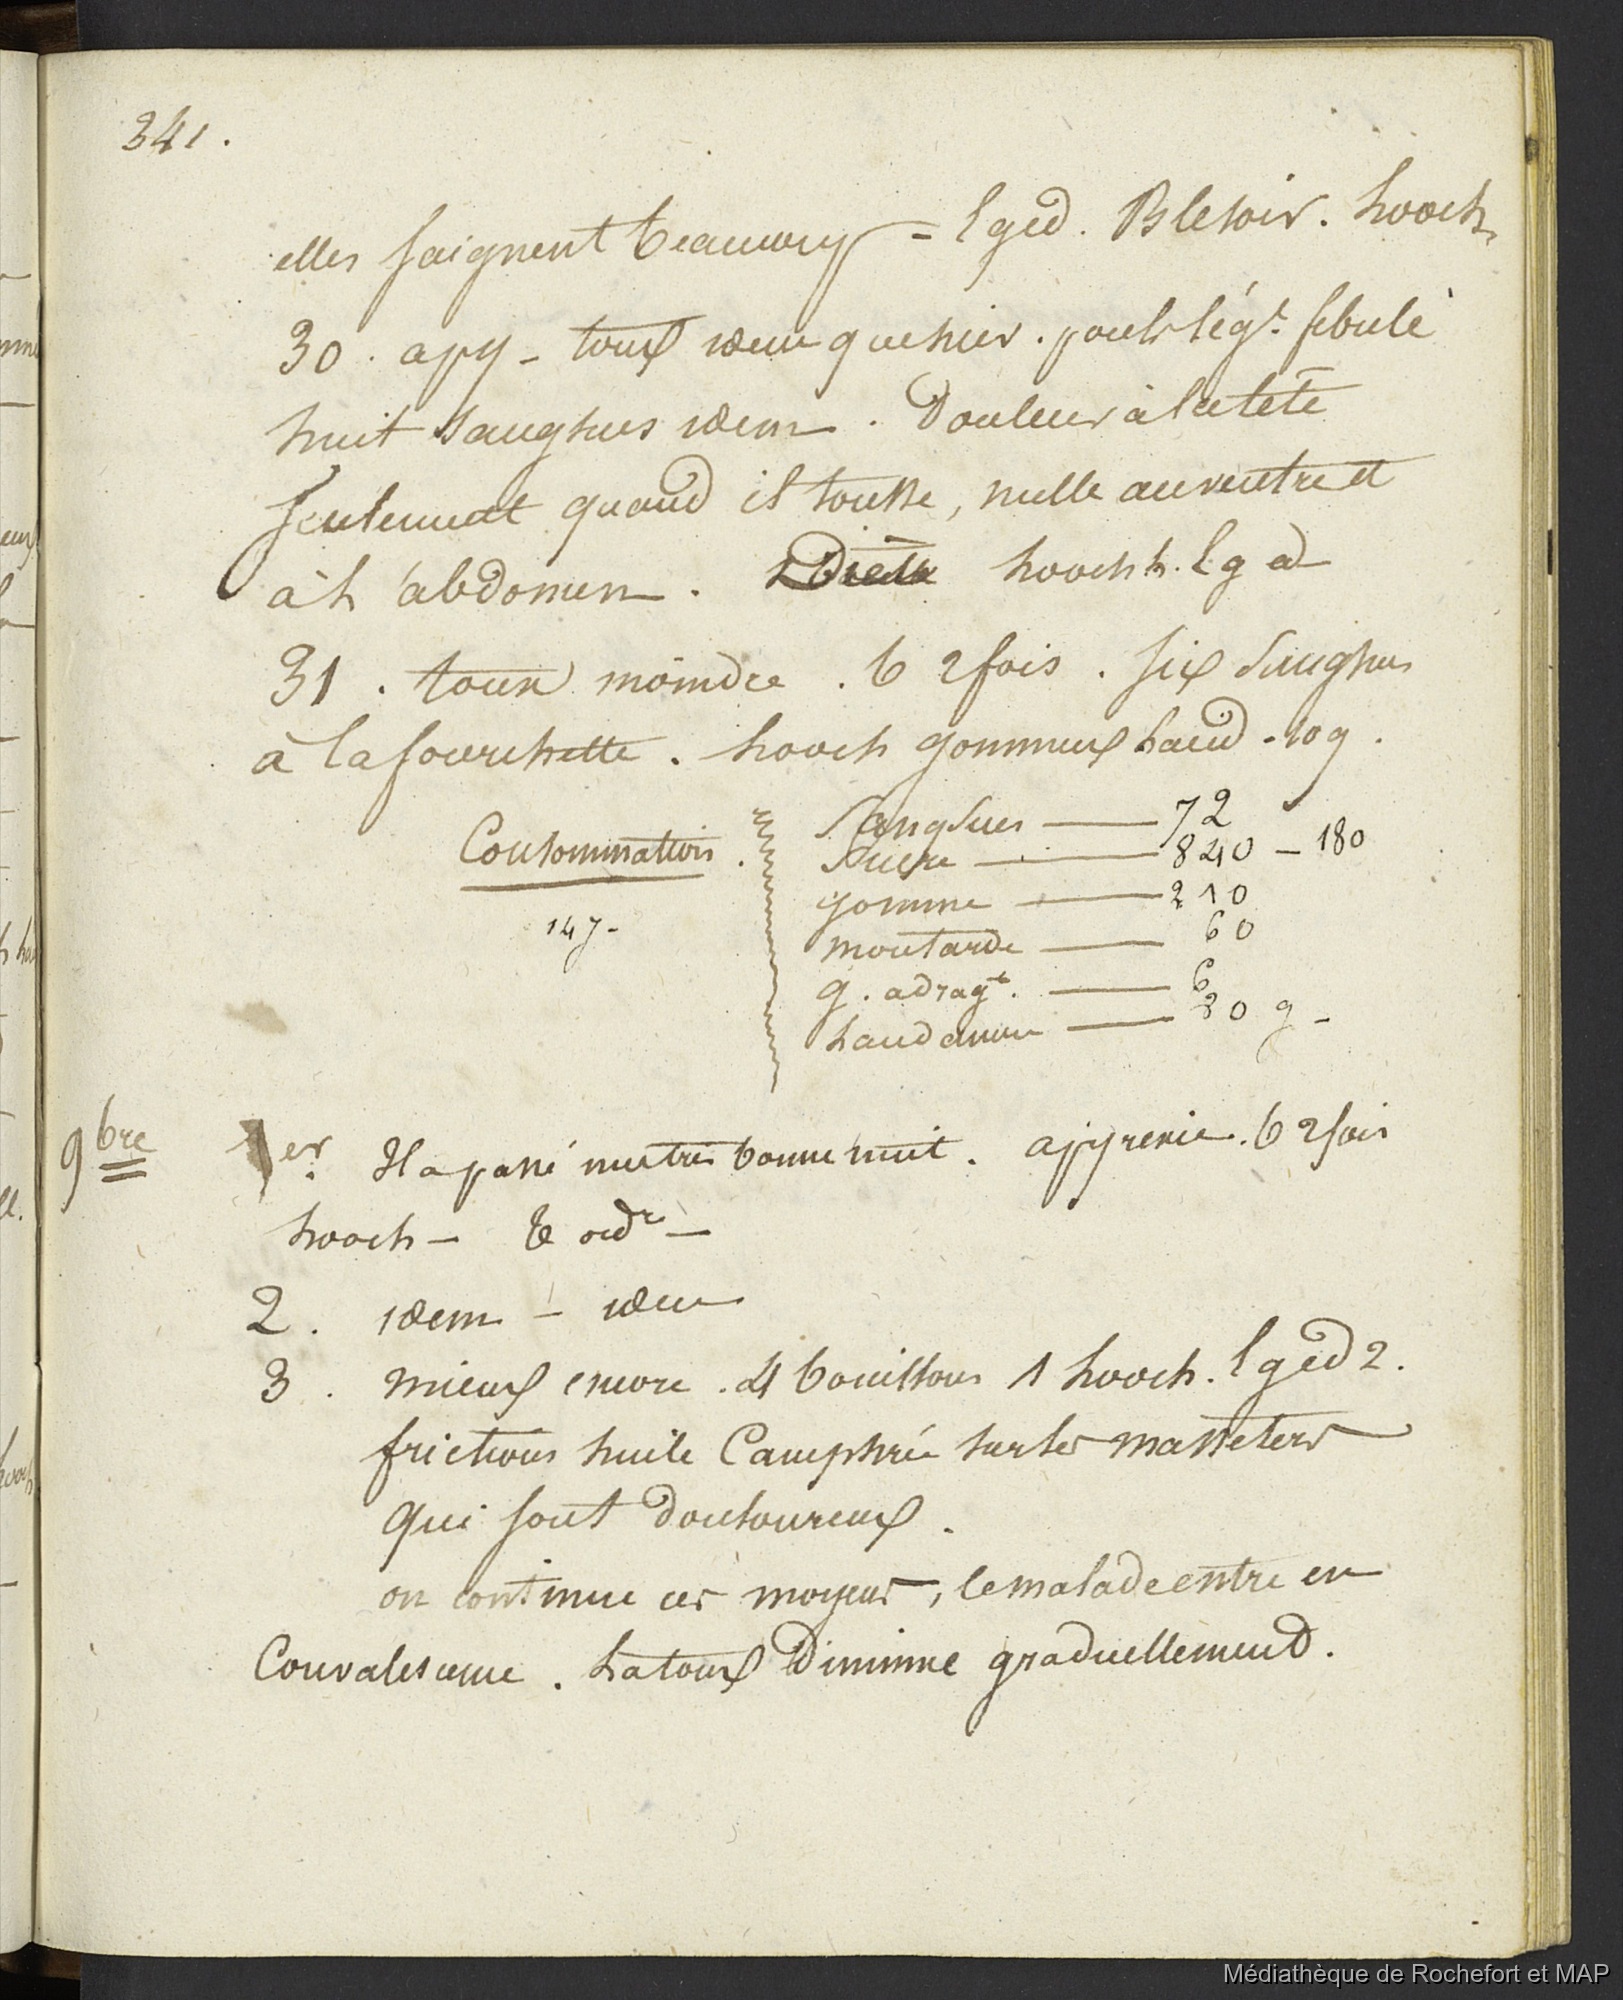 341.
elles saignent beaucoup = l g ed. B le soir. looch
30. apy - toux idem que hier. pouls légt. fébrile
huit sangsues idem. Douleur à la tête
seulement quand il tousse, nulle au ventre et
à l'abdomen. Diète looch h. l g ed
31. toux moindre. b 2 fois. six sangsues
à la fourchette. looch gommeux laud - 10 g.
Consommation. Sangsues — 72
Sucre — 840 - 180
gomme — 210
147 - moutarde — 60
g. adragt. — 6
laudanum — 80 g -
9bre 1er. Il a passé une très bonne nuit. apyrexie. b 2 fois
looch - te ordre -
2. idem - idem
3. mieux encore. 4 bouillons 1 looch. l g ed 2.
frictions huile Camphrée sur les masseters
qui sont douloureux.
on continue ces moyens, le malade entre en
Convalescence. la toux Diminue graduellement.
Médiathèque de Rochefort et MAP